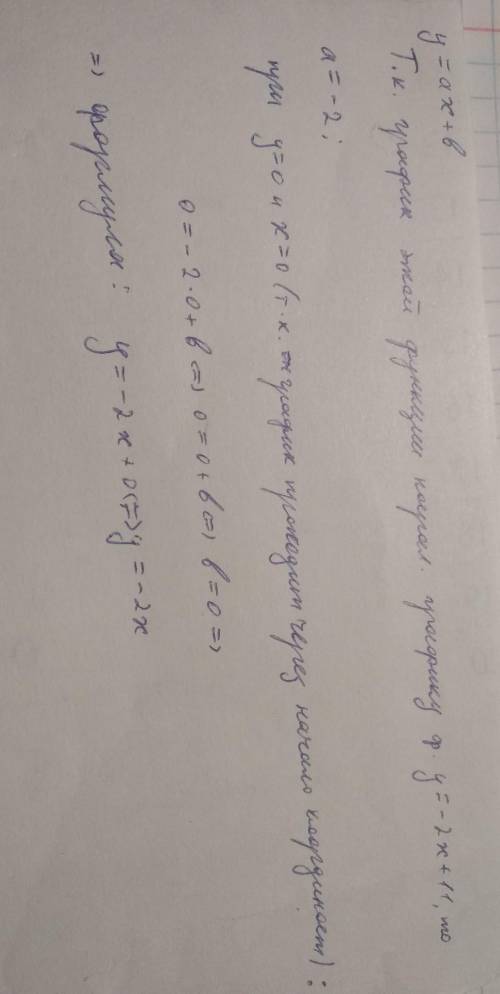 y = ax + b
Т.к. график этой функции парал. графику ф. y = -2x + 11, то
a = -2;
при y = 0 и x = 0 (т.к. график проходит через начало координат):
0 = -2·0 + b <=> 0 = 0 + b <=> b = 0 =>
=> формула: y = -2x + 0 <=> y = -2x